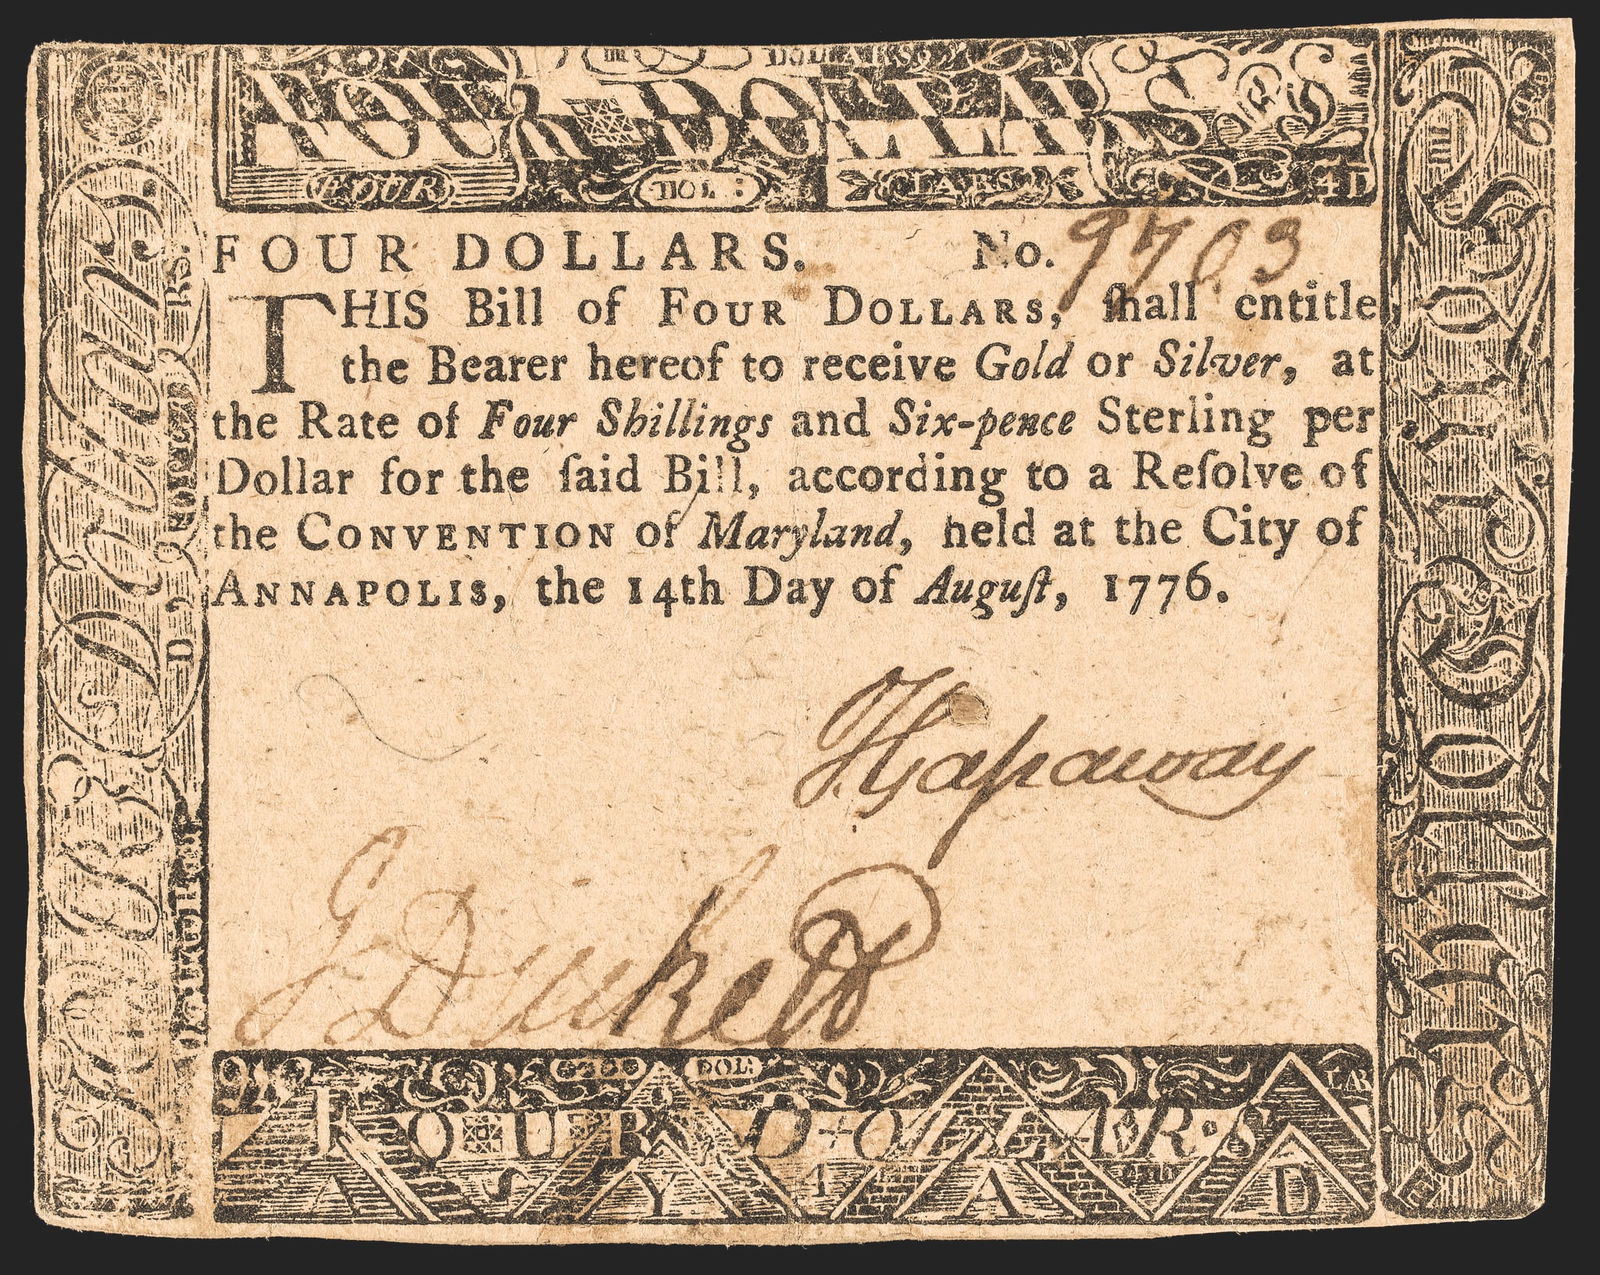 DOLLARS
FOUR DOLLARS
FOUR DOL: LARS 4D
FOUR DOLLARS. No. 9703
THIS Bill of FOUR DOLLARS, ſhall entitle
the Bearer hereof to receive Gold or Silver, at
the Rate of Four Shillings and Six-pence Sterling per
Dollar for the ſaid Bill, according to a Reſolve of
the CONVENTION of Maryland, held at the City of
ANNAPOLIS, the 14th Day of Auguſt, 1776.
J Duckett
DOL: LAR
FOUR DOLLARS
D
FOUR Dollars
Four Dollars